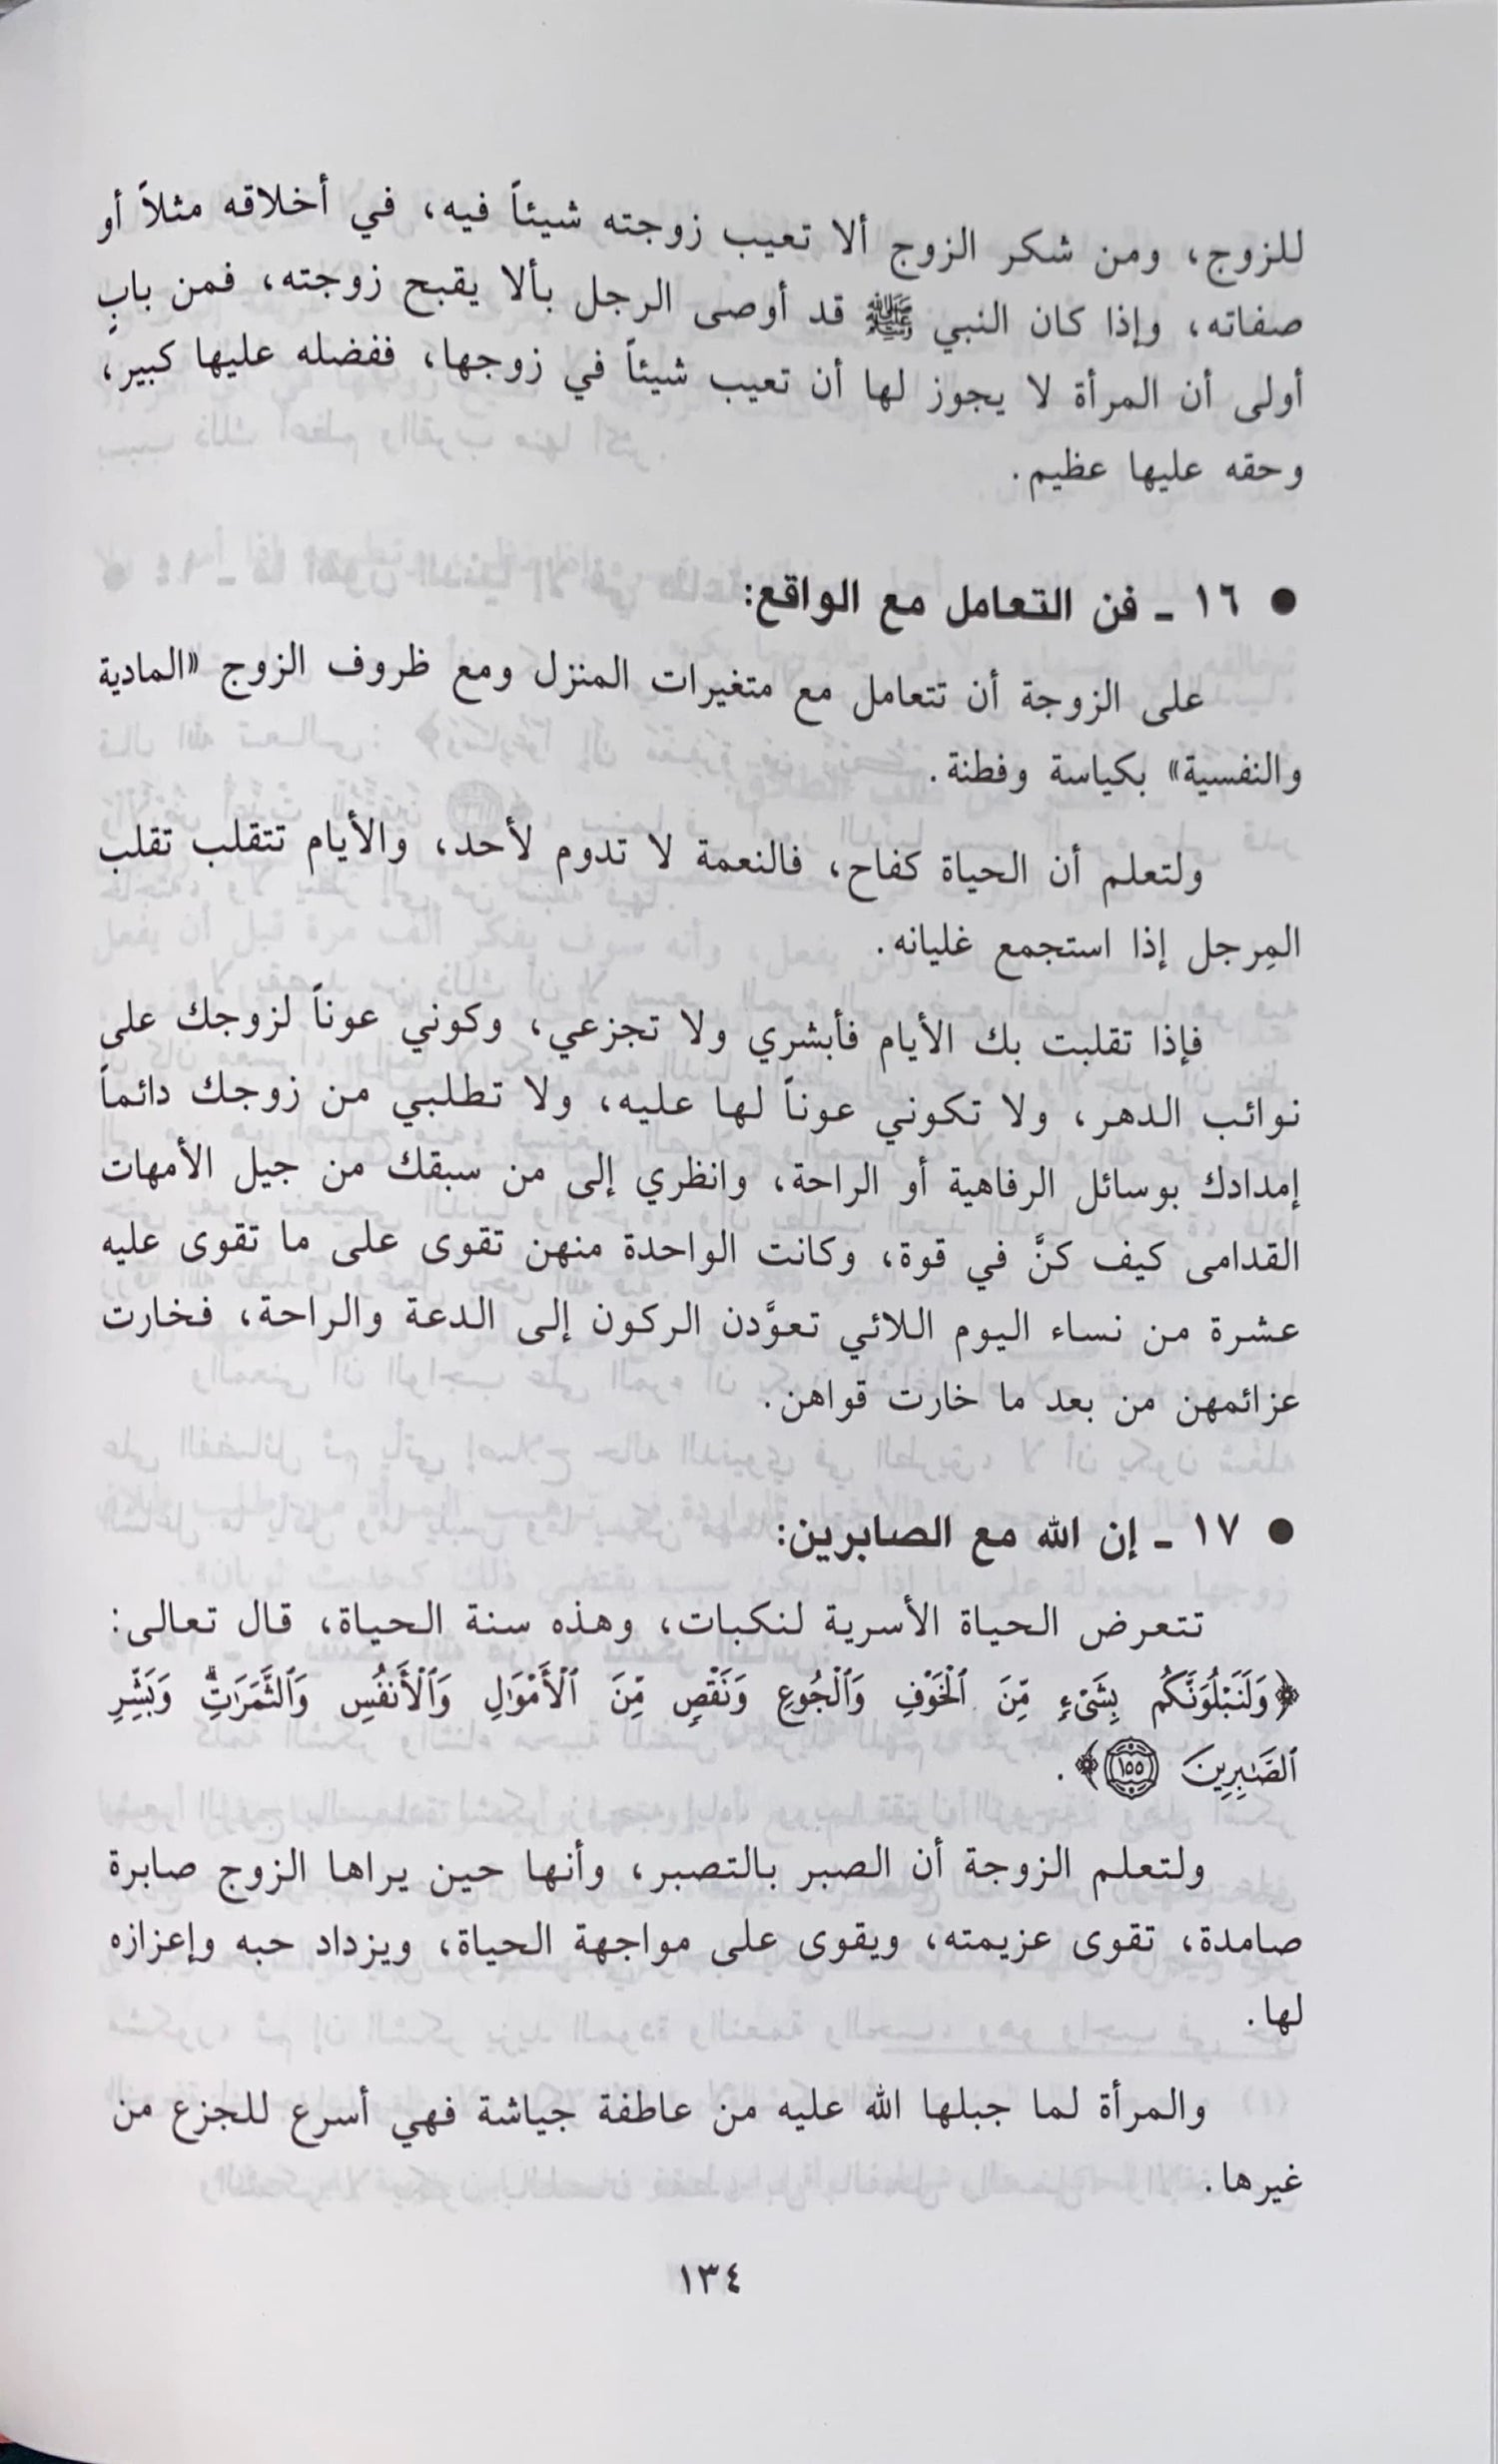 للزوج، ومن شكر الزوج ألا تعيب زوجته شيئاً فيه، في أخلاقه مثلاً أو
صفاته، وإذا كان النبي ﷺ قد أوصى الرجل بألا يقبح زوجته، فمن بابٍ
أولى أن المرأة لا يجوز لها أن تعيب شيئاً في زوجها، ففضله عليها كبير،
وحقه عليها عظيم.
● ١٦ ـ فن التعامل مع الواقع:
على الزوجة أن تتعامل مع متغيرات المنزل ومع ظروف الزوج «المادية
والنفسية» بكياسة وفطنة.
ولتعلم أن الحياة كفاح، فالنعمة لا تدوم لأحد، والأيام تتقلب تقلب
المِرجل إذا استجمع غليانه.
فإذا تقلبت بك الأيام فأبشري ولا تجزعي، وكوني عوناً لزوجك على
نوائب الدهر، ولا تكوني عوناً لها عليه، ولا تطلبي من زوجك دائماً
إمدادك بوسائل الرفاهية أو الراحة، وانظري إلى من سبقك من جيل الأمهات
القدامى كيف كنَّ في قوة، وكانت الواحدة منهن تقوى على ما تقوى عليه
عشرة من نساء اليوم اللائي تعوَّدن الركون إلى الدعة والراحة، فخارت
عزائمهن من بعد ما خارت قواهن.
● ١٧ ـ إن الله مع الصابرين:
تتعرض الحياة الأسرية لنكبات، وهذه سنة الحياة، قال تعالى:
﴿وَلَنَبْلُوَنَّكُم بِشَىْءٍ مِّنَ ٱلْخَوْفِ وَٱلْجُوعِ وَنَقْصٍ مِّنَ ٱلْأَمْوَٰلِ وَٱلْأَنفُسِ وَٱلثَّمَرَٰتِۗ وَبَشِّرِ
ٱلصَّٰبِرِينَ ١٥٥﴾.
ولتعلم الزوجة أن الصبر بالتصبر، وأنها حين يراها الزوج صابرة
صامدة، تقوى عزيمته، ويقوى على مواجهة الحياة، ويزداد حبه وإعزازه
لها.
والمرأة لما جبلها الله عليه من عاطفة جياشة فهي أسرع للجزع من
غيرها.
١٣٤